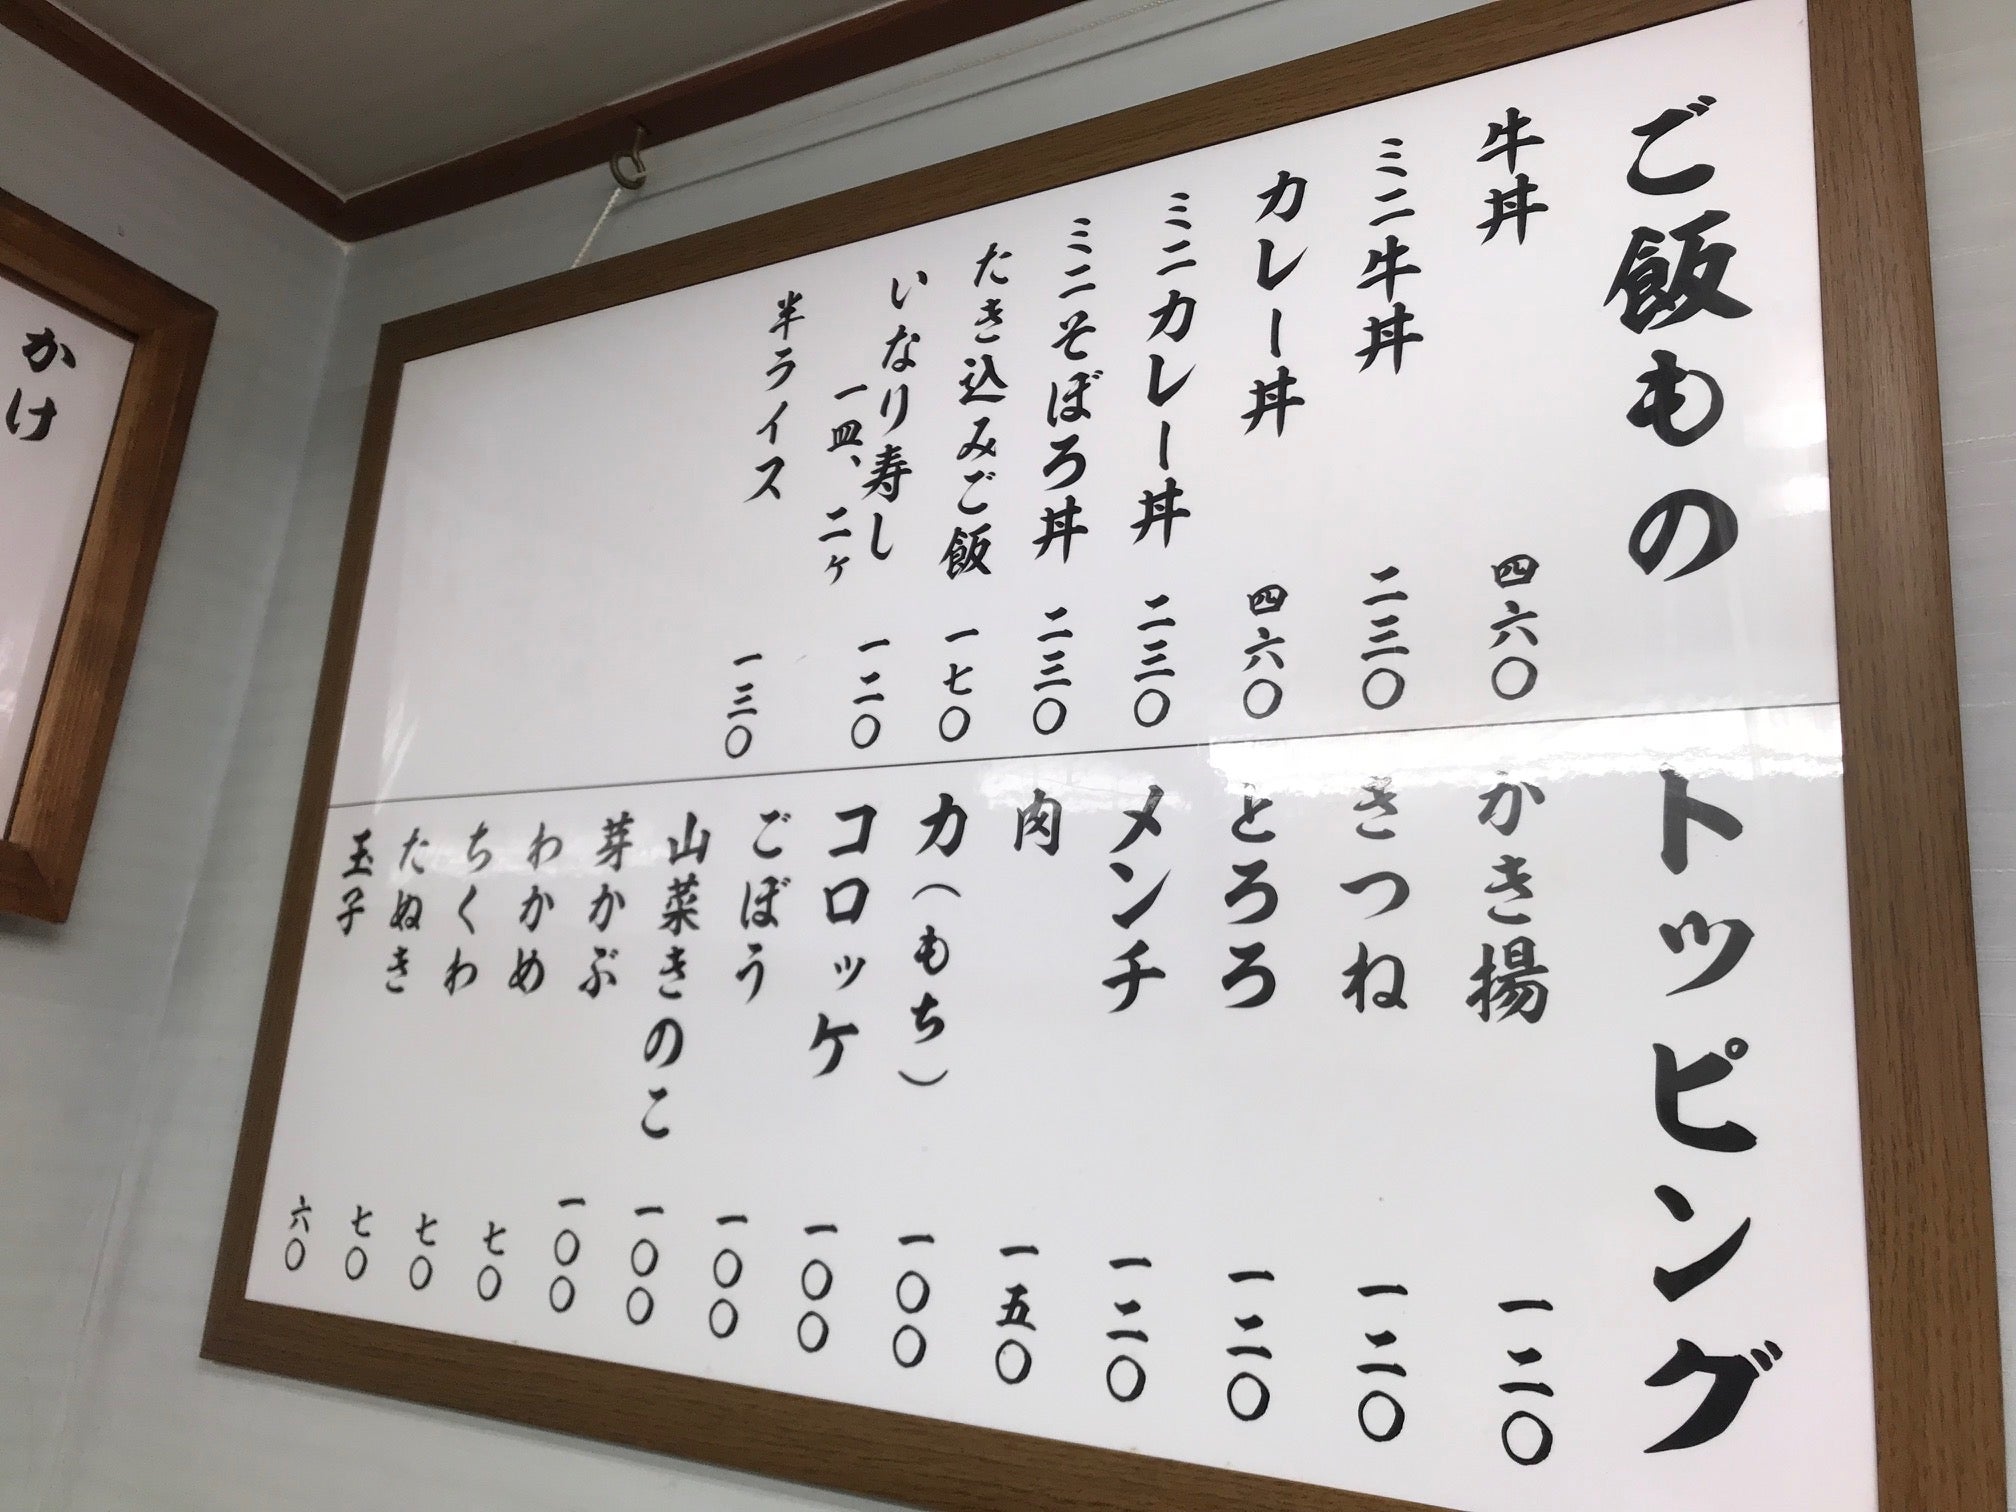 ご飯もの
牛丼 四六〇
ミニ牛丼 二三〇
カレー丼 四六〇
ミニカレー丼 二三〇
ミニそぼろ丼 二三〇
たき込みご飯 一七〇
いなり寿し 一二〇
一皿、二ヶ
半ライス 一三〇
トッピング
かき揚 一二〇
きつね 一二〇
とろろ 一二〇
メンチ 一二〇
肉 一五〇
力(もち) 一〇〇
コロッケ 一〇〇
ごぼう 一〇〇
山菜きのこ 一〇〇
芽かぶ 一〇〇
わかめ 七〇
ちくわ 七〇
たぬき 七〇
玉子 六〇
かけ